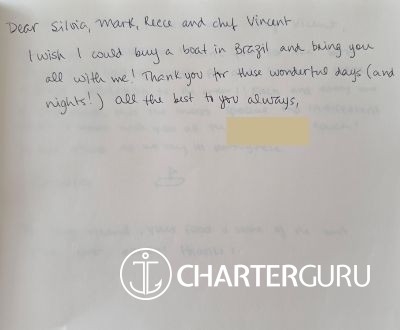 Dear Silvia, Mark, Reece and chef Vincent
I wish I could buy a boat in Brazil and bring you
all with me! Thank you for these wonderful days (and
nights!) all the best to you always,
CHARTERGURU